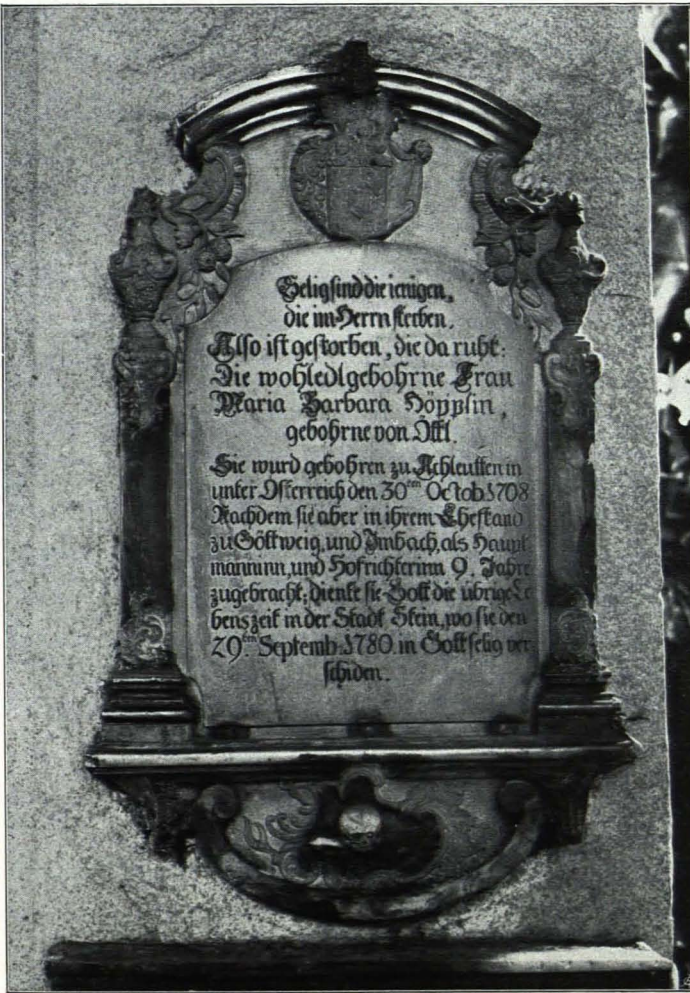 Selig sind die ienigen,
die im Herrn sterben.
Also ist gestorben, die da ruht:
Die wohledlgebohrne Frau
Maria Barbara Höpplin,
gebohrne von Öttl.
Sie wurd gebohren zu Achleutten in
unter Österreich den 30ten Octob. 1708
Nachdem sie aber in ihrem Ehestand
zu Göttweig, und Imbach, als Haupt
maninn, und Hofrichterinn 9. Jahre
zugebracht; diente sie Gott die übrige Le
benszeit in der Stadt Stein, wo sie den
29.ten Septemb. 1780. in Gott selig ver
schiden.